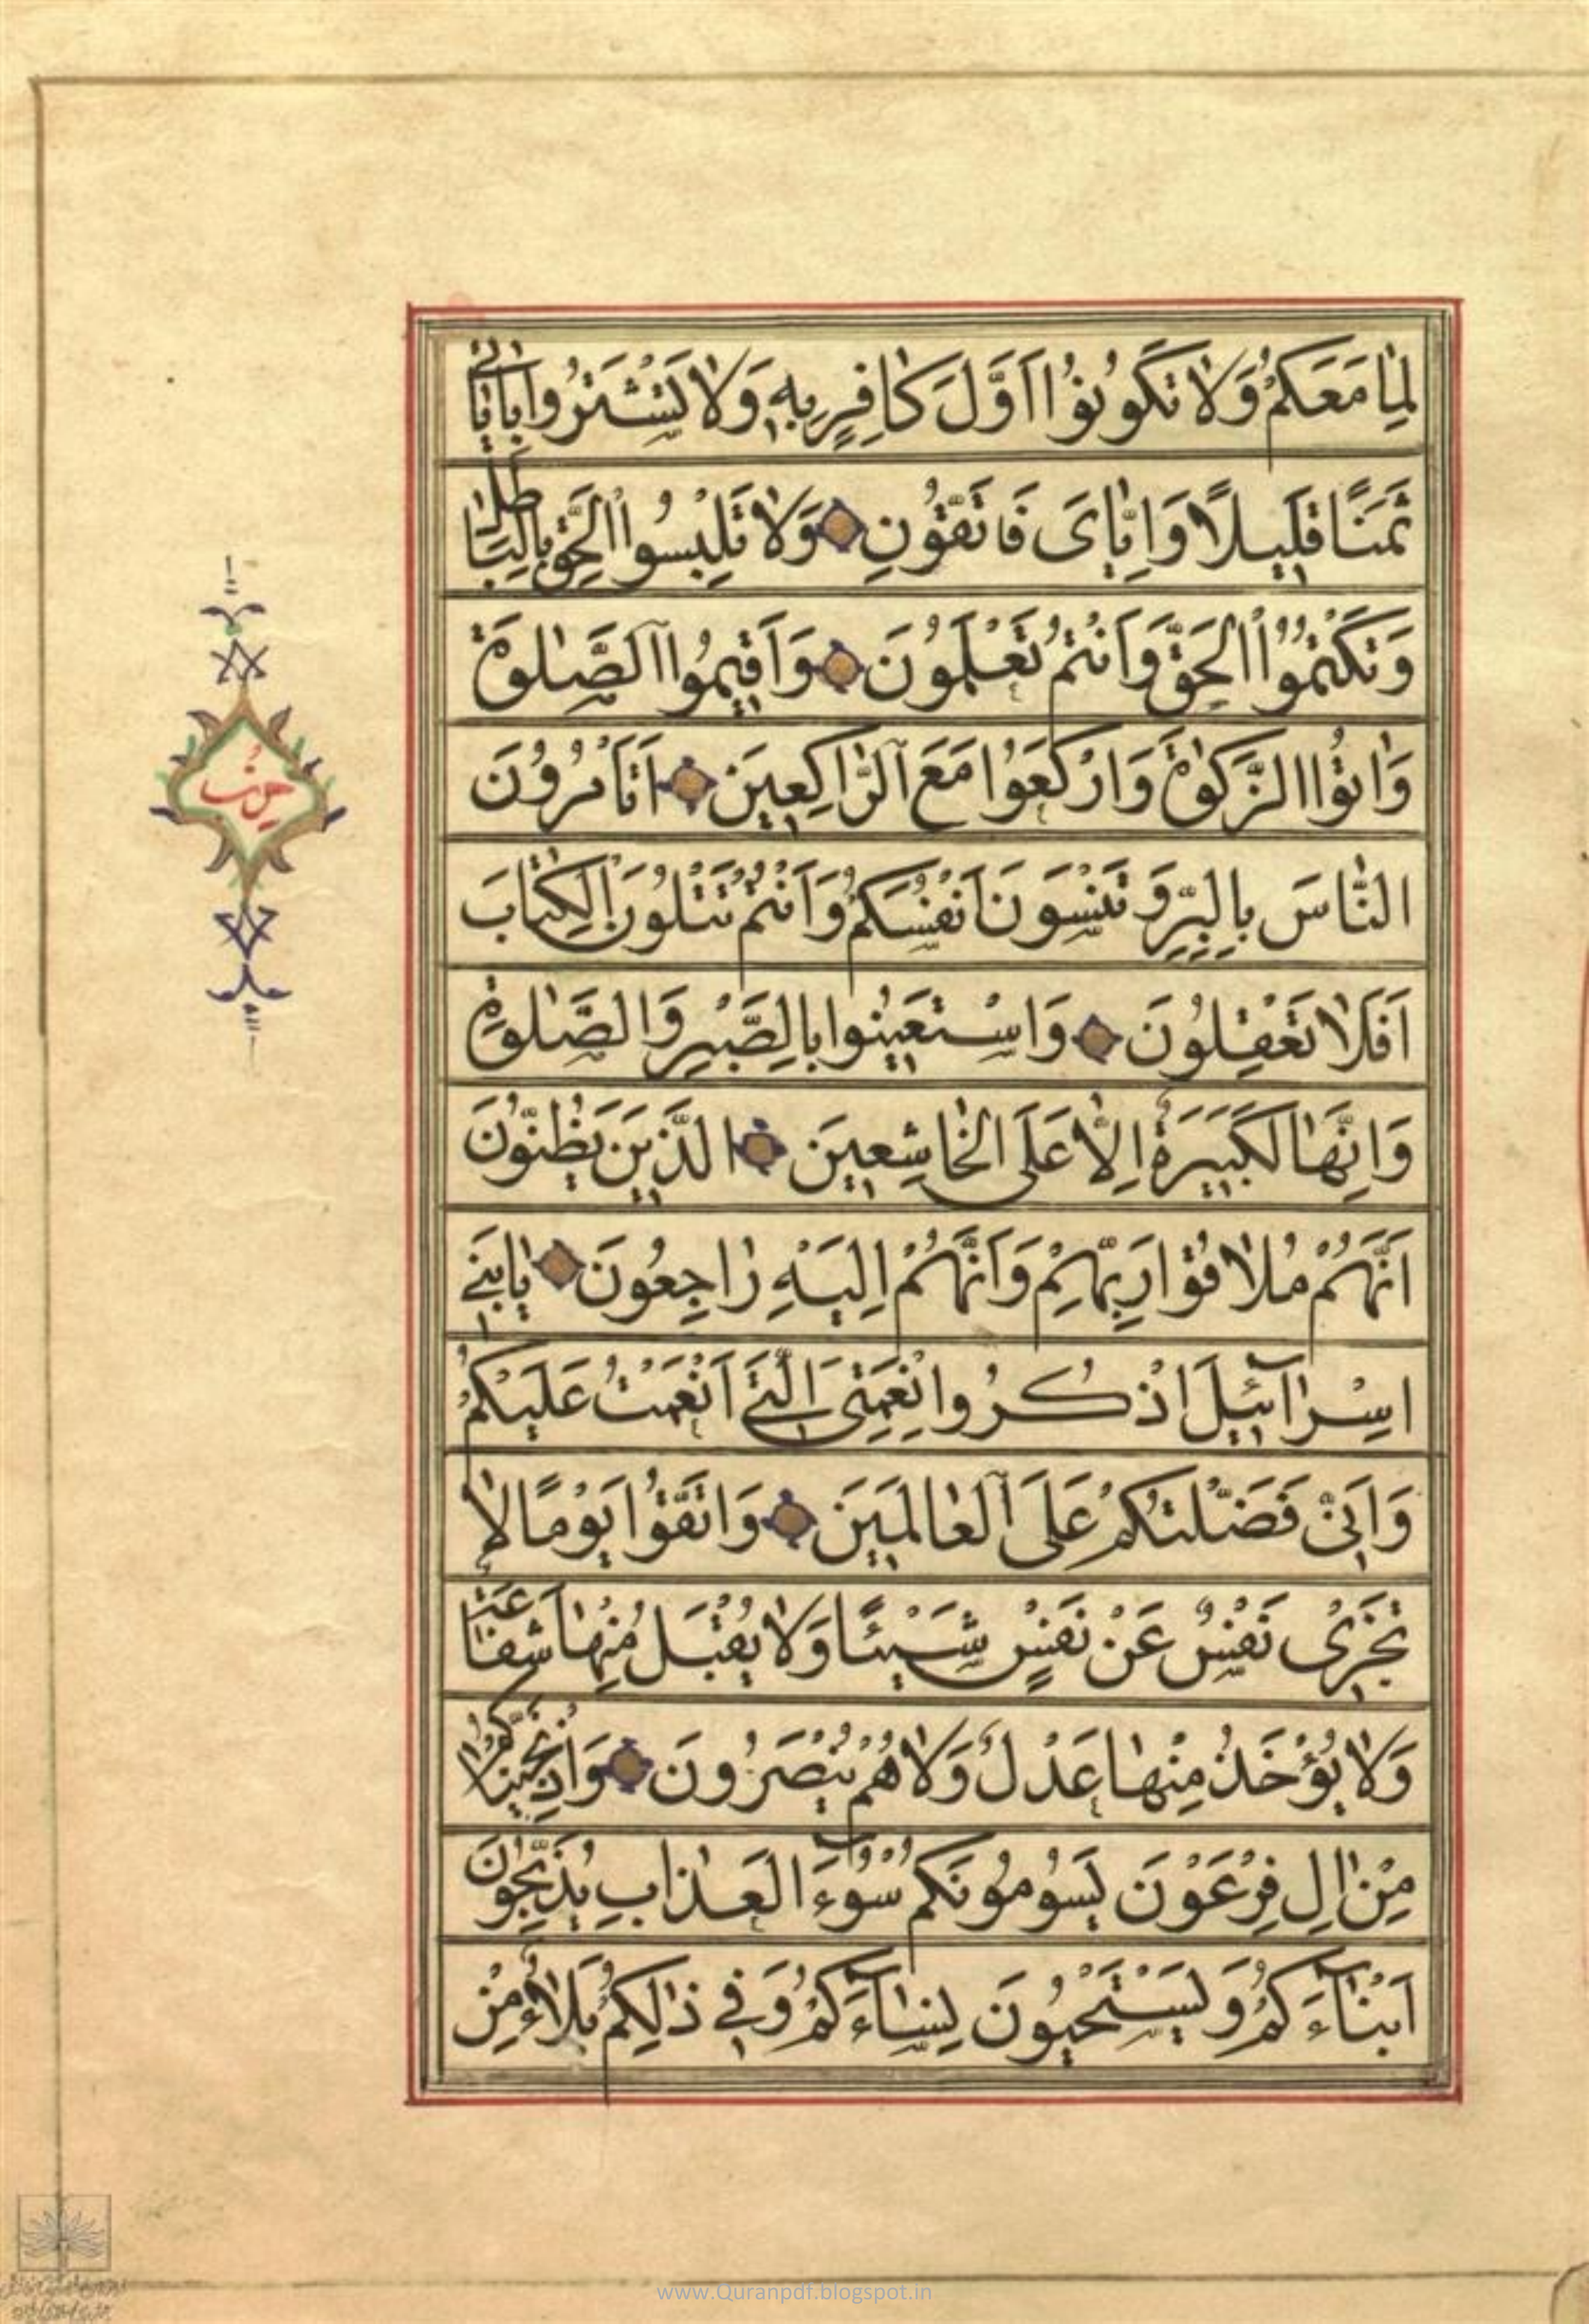 لِمٰا مَعَكُمْ وَلٰا تَكُونُوٓا اَوَّلَ كٰافِرٍ بِهٖ وَلٰا تَشْتَرُوا بِاٰيٰاتٖى
ثَمَنًا قَلٖيلًا وَاِيّٰاىَ فَاتَّقُونِ وَلٰا تَلْبِسُوا الْحَقَّ بِالْبٰاطِلِ
وَتَكْتُمُوا الْحَقَّ وَاَنْتُمْ تَعْلَمُونَ وَاَقٖيمُوا الصَّلٰوةَ
وَاٰتُوا الزَّكٰوةَ وَارْكَعُوا مَعَ الرّٰاكِعٖينَ اَتَأْمُرُونَ
النّٰاسَ بِالْبِرِّ وَتَنْسَوْنَ اَنْفُسَكُمْ وَاَنْتُمْ تَتْلُونَ الْكِتٰابَ
اَفَلٰا تَعْقِلُونَ وَاسْتَعٖينُوا بِالصَّبْرِ وَالصَّلٰوةِ
وَاِنَّهٰا لَكَبٖيرَةٌ اِلّٰا عَلَى الْخٰاشِعٖينَ الَّذٖينَ يَظُنُّونَ
اَنَّهُمْ مُلٰاقُوا رَبِّهِمْ وَاَنَّهُمْ اِلَيْهِ رٰاجِعُونَ يٰا بَنٖى
اِسْرٰآئٖيلَ اذْكُرُوا نِعْمَتِىَ الَّتٖٓى اَنْعَمْتُ عَلَيْكُمْ
وَاَنّٖى فَضَّلْتُكُمْ عَلَى الْعٰالَمٖينَ وَاتَّقُوا يَوْمًا لٰا
تَجْزٖى نَفْسٌ عَنْ نَفْسٍ شَيْئًا وَلٰا يُقْبَلُ مِنْهٰا شَفٰاعَةٌ
وَلٰا يُؤْخَذُ مِنْهٰا عَدْلٌ وَلٰا هُمْ يُنْصَرُونَ وَاِذْ نَجَّيْنٰاكُمْ
مِنْ اٰلِ فِرْعَوْنَ يَسُومُونَكُمْ سُوٓءَ الْعَذٰابِ يُذَبِّحُونَ
اَبْنٰآءَكُمْ وَيَسْتَحْيُونَ نِسٰآءَكُمْ وَفٖى ذٰلِكُمْ بَلٰٓاءٌ مِنْ
حزب
www.Quranpdf.blogspot.in